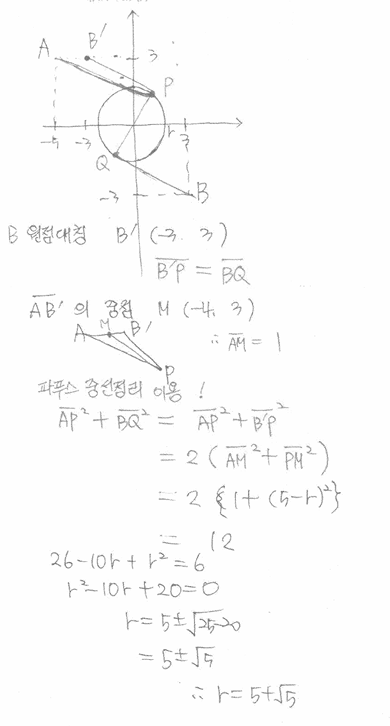 A B′ 3
P
-5 -3 r 3
Q
-3 B
B 원점대칭 B′ (-3. 3)
B′P = BQ
AB′ 의 중점 M (-4. 3)
A M B′ ∴ AM = 1
P
파푸스 중선정리 이용 !
AP² + BQ² = AP² + B′P²
= 2 ( AM² + PM² )
= 2 { 1 + (5-r)² }
= 12
26 - 10r + r² = 6
r² - 10r + 20 = 0
r = 5 ± √25-20
= 5 ± √5
∴ r = 5 + √5